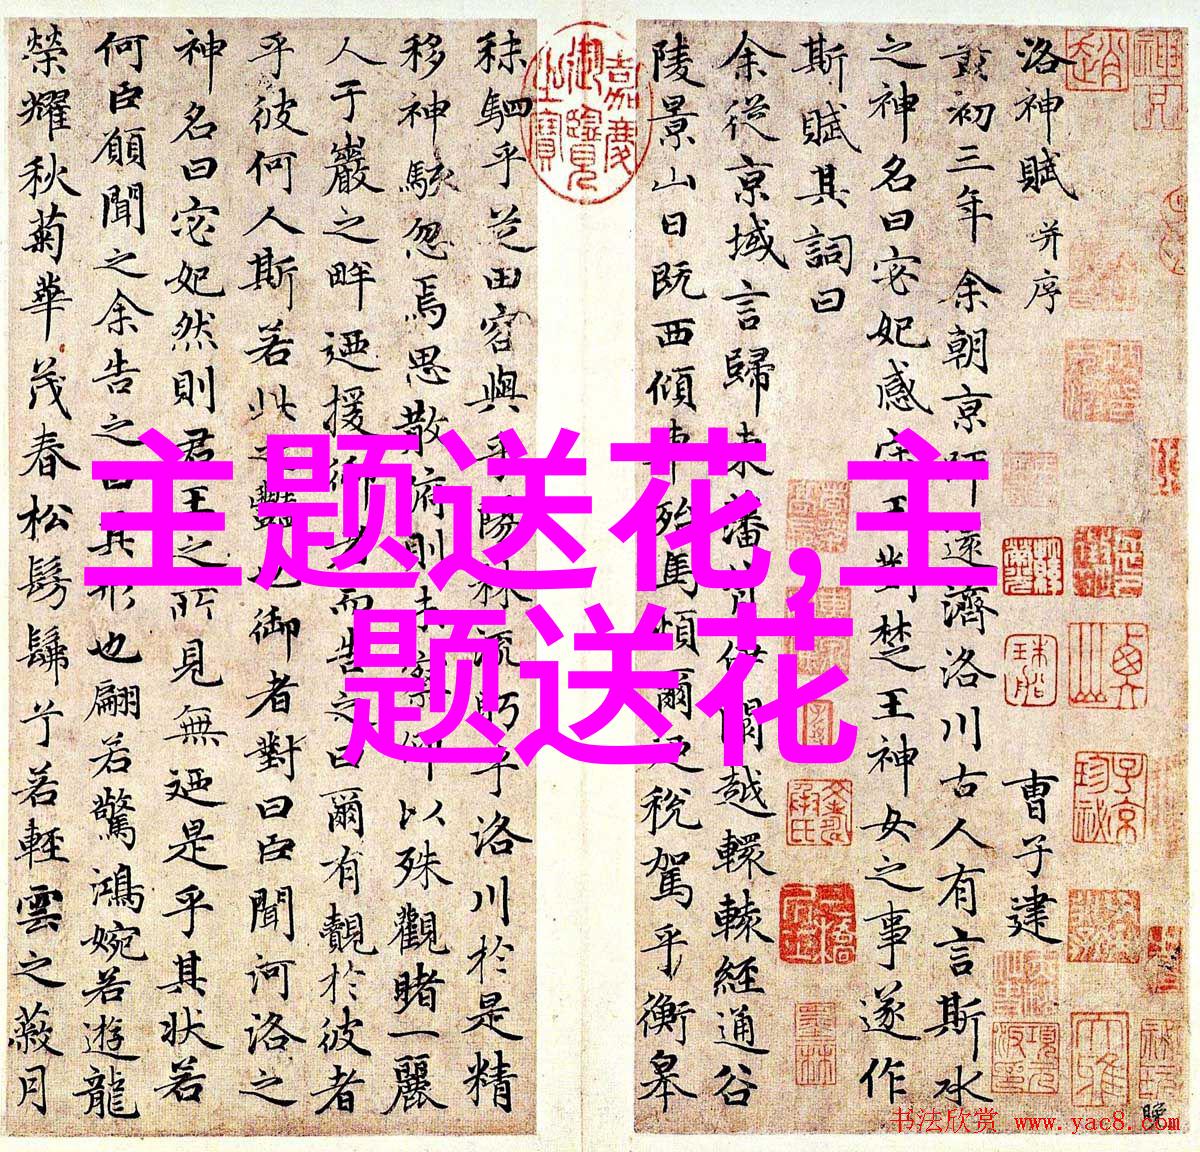 洛神賦 并序
曹子建
黃初三年余朝京師還濟洛川古人有言斯水
之神名曰宓妃感宋玉對楚王神女之事遂作
斯賦其詞曰
余從京域言歸東藩背伊闕越轘轅經通谷
陵景山日既西傾車殆馬煩爾乃稅駕乎衡皋
秣駟乎芝田容與乎陽林流眄乎洛川於是精
移神駭忽焉思散俯則未察仰以殊觀睹一麗
人于巖之畔迺援御者而告之曰爾有覿於彼者
乎彼何人斯若此之豔也御者對曰臣聞河洛之
神名曰宓妃然則君王之所見無迺是乎其狀若
何臣願聞之余告之曰其形也翩若驚鴻婉若遊龍
榮耀秋菊華茂春松髣髴兮若輕雲之蔽月
嘉慶御覽之寶
主题送花,主
题送花
书法欣赏 www.yac8.com